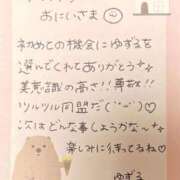 おにいさま
初めての機会にゆずるを
選んでくれてありがとうナ
美意識の高さ!!尊敬!!
ツルツル同盟だ(˙˘˙)♡
次はどんな事しようかな〜ナ
楽しみに待ってるね♡
ゆずる